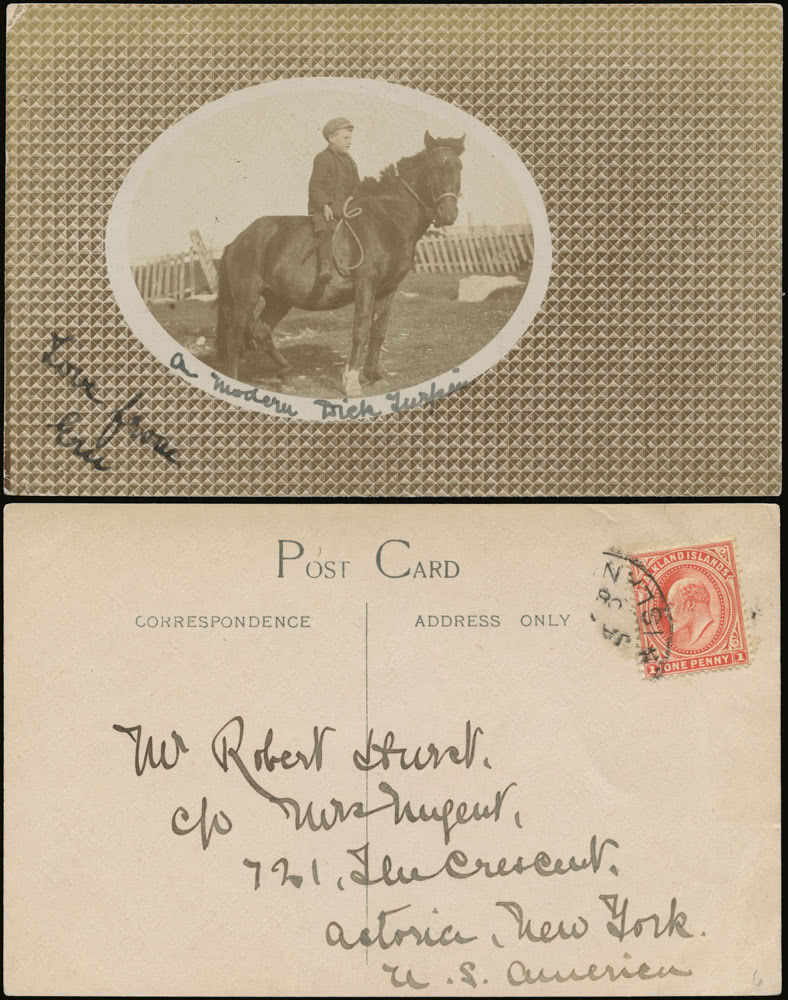 a modern Dick Turpin
Love from
POST CARD
CORRESPONDENCE
ADDRESS ONLY
KLAND ISLANDS
ONE PENNY
1 1
JA 8
Mr Robert Hurst.
c/o Mrs Nugent,
721, The Crescent.
Astoria, New York.
U.S. America
6